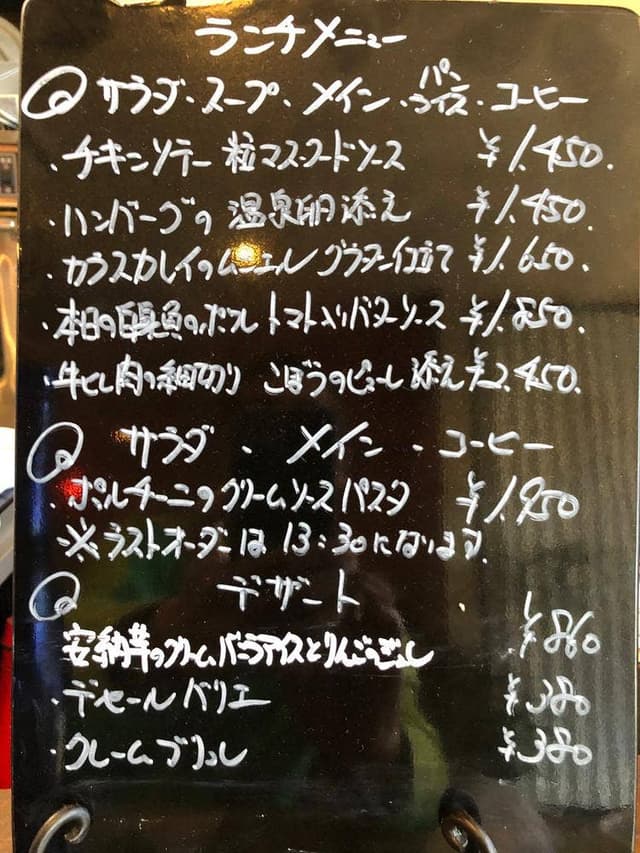 ランチメニュー
サラダ・スープ・メイン・パンライス・コーヒー
・チキンソテー 粒マスタードソース ¥1.450.
・ハンバーグの温泉卵添え ¥1.450.
・カラスカレイのムニエル グラタン仕立て ¥1.650.
・本日の白身魚のポワレ トマト入りバターソース ¥1.850.
・牛ヒレ肉の細切り ごぼうのピューレ添え ¥2.450.
サラダ・メイン・コーヒー
・ポルチーニのクリームソースパスタ ¥1.950
※ラストオーダーは13:30になります.
デザート
安納芋のクリーム バニラアイスとりんご ¥860
・デセールバリエ ¥380
・クレームブリュレ ¥380